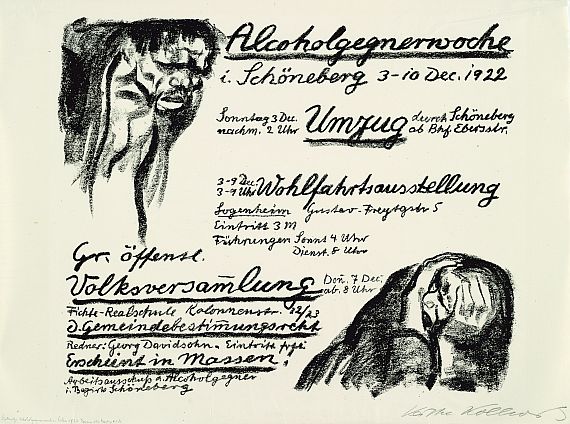 Alcoholgegnerwoche
i. Schöneberg 3-10 Dec. 1922
Sonntag 3 Dec.
nachm. 2 Uhr
Umzug
durch Schöneberg
ab Bhf. Ebersstr.
3-9 Dec.
3-9 Uhr
Wohlfahrtsausstellung
Logenheim Gustav-Freytagstr 5
Eintritt 3 M
Führungen Sonnt 4 Uhr
Dienst. 8 Uhr
Gr. öffentl.
Volksversam̅lung
Don̅. 7 Dec.
ab. 8 Uhr
Fichte-Realschule Kolonnenstr. 22/23
D. Gemeindebestim̅ungsrecht
Redner: Georg Davidsohn. Eintritt frei
Erscheint in Massen!
Arbeitsausschuß d. Alcoholgegner
i. Bezirk Schöneberg
Käthe Kollwitz